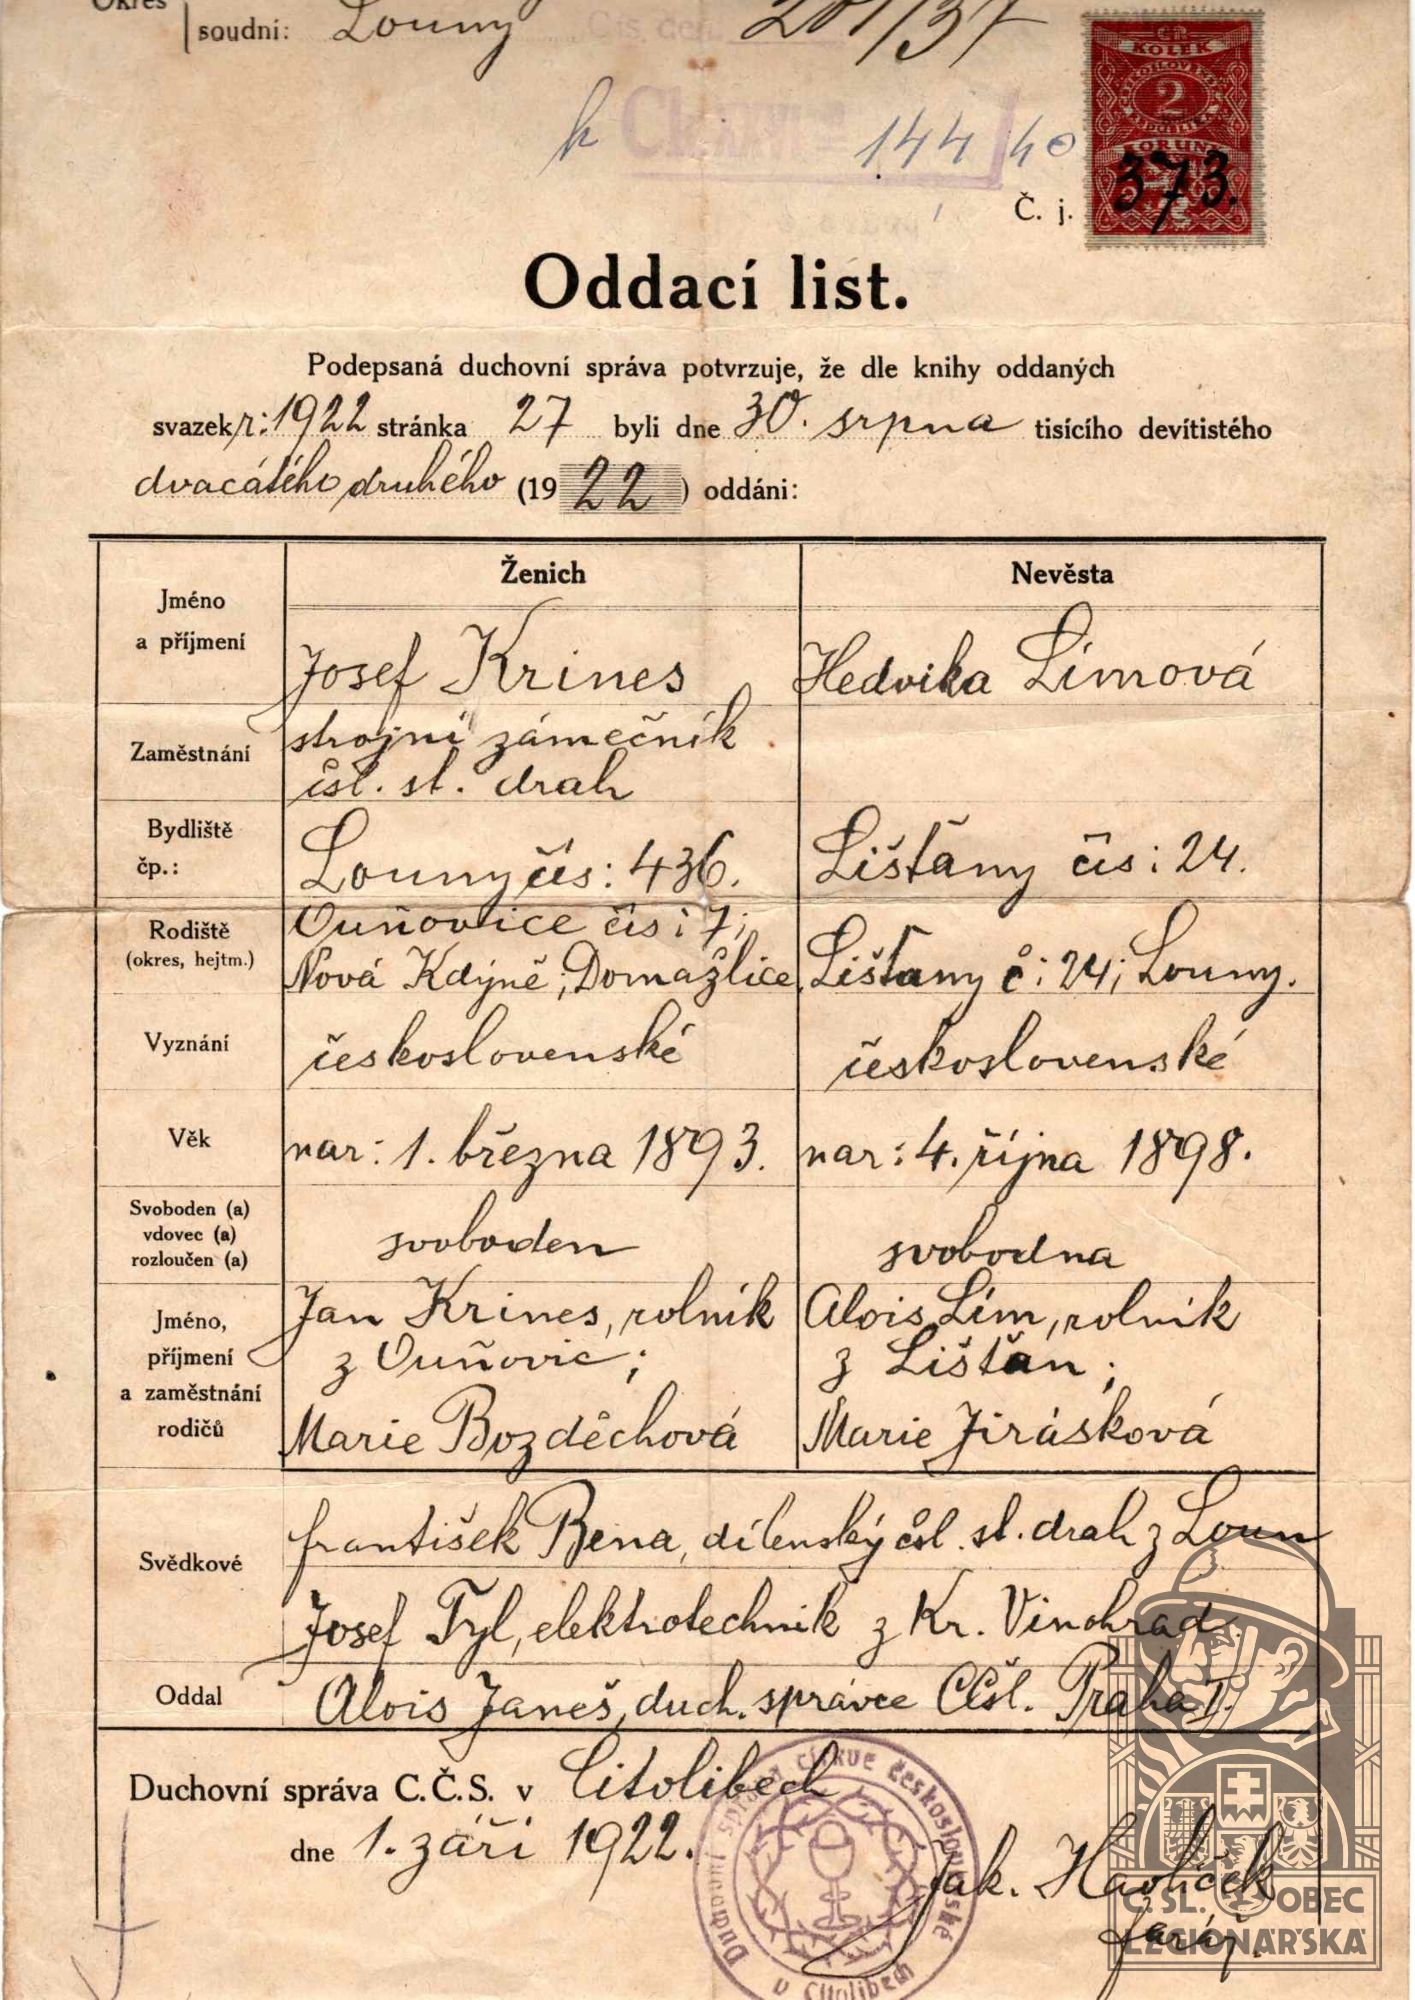 Okres
soudní: Louny Čís. den. 201/37
k 144/40
KOLEK
2
373.
Č. j.
Oddací list.
Podepsaná duchovní správa potvrzuje, že dle knihy oddaných
svazek r: 1922 stránka 27 byli dne 30. srpna tisícího devítistého
dvacátého druhého (1922) oddáni:
Ženich Nevěsta
Jméno
a příjmení
Josef Krines Hedvika Límová
Zaměstnání
strojní zámečník
čsl. st. drah
Bydliště
čp.:
Louny čís: 436. Lišťany čís: 24.
Rodiště
(okres, hejtm.)
Ouňovice čís: 7;
Nová Kdýně; Domažlice. Lišťany č: 24; Louny.
Vyznání
československé československé
Věk
nar: 1. března 1893. nar: 4. října 1898.
Svoboden (a)
vdovec (a)
rozloučen (a)
svoboden svobodna
Jméno,
příjmení
a zaměstnání
rodičů
Jan Krines, rolník Alois Lím, rolník
z Ouňovic; z Lišťan;
Marie Bozděchová Marie Jirásková
Svědkové
František Bena, dílenský čsl. st. drah z Loun
Josef Tyl, elektrotechnik z Kr. Vinohrad.
Oddal
Alois Janeš, duch. správce CČsl. Praha I.
Duchovní správa C.Č.S. v Citolibech
dne 1. září 1922.
Duchovní správa církve československé
v Citolibech
Jak. Havlíček
farář.
Č. SL. OBEC
LEGIONÁŘSKÁ